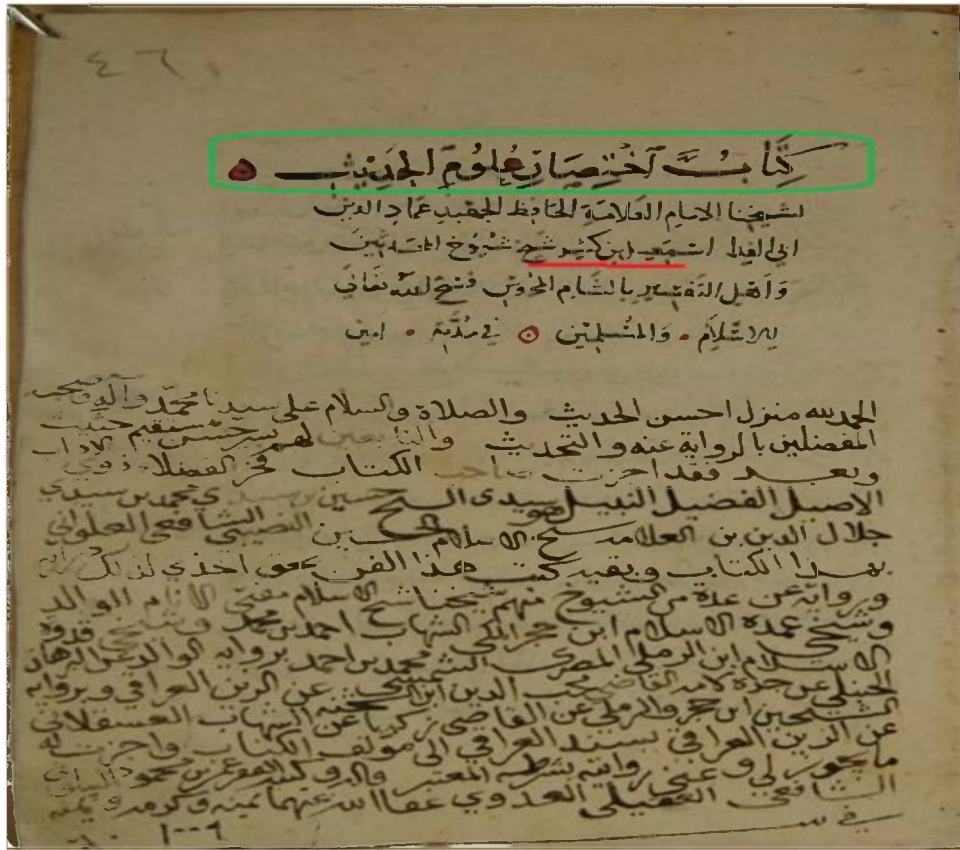 ٤٦
كتاب اختصار علوم الحديث
لشيخنا الامام العلامة الحافظ المفيد عماد الدين
ابي الفدا اسمعيل بن كثير شيخ شيوخ المحدثين
وأهل التفسير بالشام المحروس فسح الله تعالى
للاسلام والمسلمين في مدته امين
الحمد لله منزل احسن الحديث والصلاة والسلام على سيدنا محمد وآله وصحبه
المفضلين بالرواية عنه والتحديث والتابعين لهم
وبعد فقد اجزت صاحب الكتاب فخر الفضلاء ذوي الاداب
الاصيل الفضيل النبيل سيدي الشيخ حسين بن سيدي محمد بن سيدي
جلال الدين بن العلامة شيخ الاسلام بن النصيبي الشافعي الحلواني
بهذا الكتاب وبقية كتب هذا الفن بحق اخذي لذلك
وروايته عن عدة من الشيوخ منهم شيخنا شيخ الاسلام مفتي الانام الوالد
وشيخي عمدة الاسلام ابن حجر المكي الشهاب احمد بن محمد وشيخي قدوة
الاسلام ابن الرملي المصري الشمس محمد بن احمد برواية الوالد عن البرهان
الحنبلي عن جده لامه القاضي محب الدين ابن الشحنة عن الزين العراقي وبرواية
الشيخين ابن حجر والرملي عن القاضي زكريا عن الشهاب العسقلاني
عن الزين العراقي بسند العراقي الى مؤلف الكتاب واجزت له
ما يجوز لي وعني روايته بشرطه المعتبر قاله وكتبه عمر بن محمود
الشافعي العقيلي العدوي عفا الله عنهما بمنه وكرمه
في
١٠٠٦